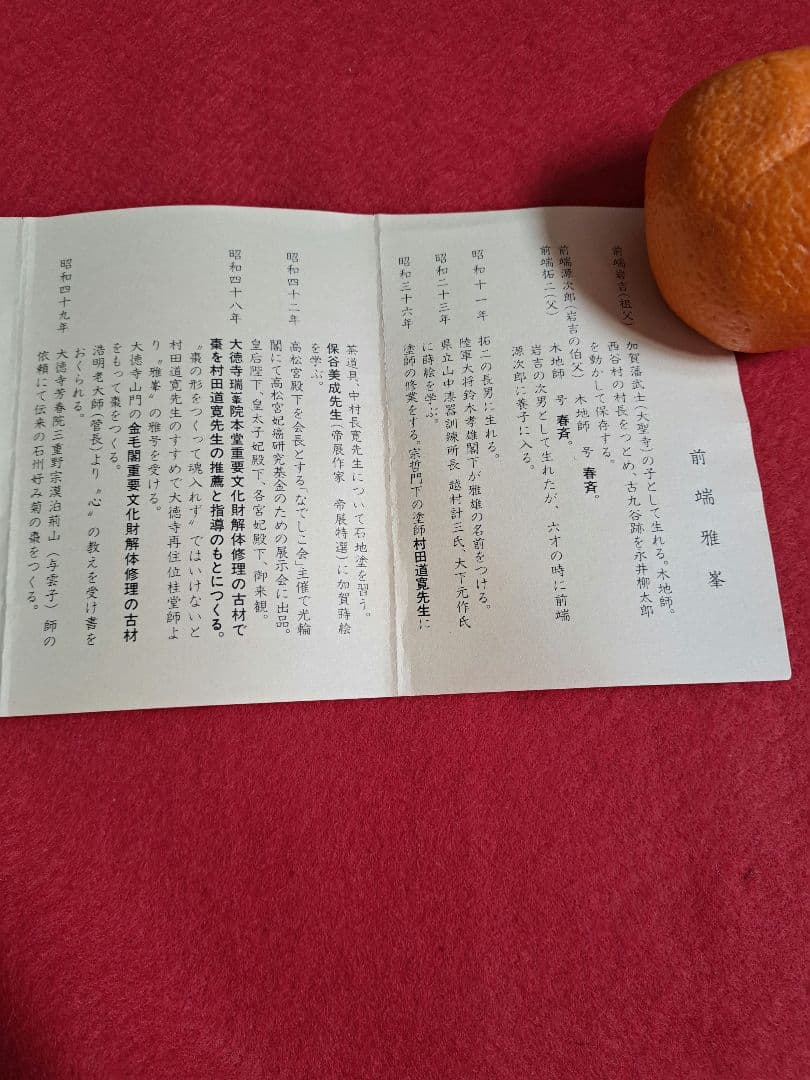 前端雅峯
前端岩吉(祖父) 加賀藩武士(大聖寺)の子として生れる。木地師。
西谷村の村長をつとめ、古九谷跡を永井柳太郎
を動かして保存する。
前端源次郎(岩吉の伯父) 木地師 号 春斉。
前端拓二(父) 木地師 号 春斉。
岩吉の次男として生れたが、六才の時に前端
源次郎に養子に入る。
昭和十一年 拓二の長男に生れる。
陸軍大将鈴木孝雄閣下が雅雄の名前をつける。
昭和二十三年 県立山中漆器訓練所長 越村計三氏、大下元作氏
に蒔絵を学ぶ。
昭和三十六年 塗師の修業をする。宗哲門下の塗師村田道寛先生に
茶道具、中村長寛先生について石地塗を習う。
保谷美成先生(帝展作家 帝展特選)に加賀蒔絵
を学ぶ。
昭和四十二年 高松宮殿下を会長とする「なでしこ会」主催で光輪
閣にて高松宮妃癌研究基金のための展示会に出品。
皇后陛下、皇太子妃殿下、各宮妃殿下、御来観。
昭和四十八年 大徳寺瑞峯院本堂重要文化財解体修理の古材で
棗を村田道寛先生の推薦と指導のもとにつくる。
〝棗の形をつくって魂入れず〟ではいけないと
村田道寛先生のすすめで大徳寺再住位桂堂師よ
り〝雅峯〟の雅号を受ける。
大徳寺山門の金毛閣重要文化財解体修理の古材
をもって棗をつくる。
浩明老大師(管長)より〝心〟の教えを受け書を
おくられる。
昭和四十九年 大徳寺芳春院三重野宗漢泊荊山(与雲子)師の
依頼にて伝来の石州好み菊の棗をつくる。